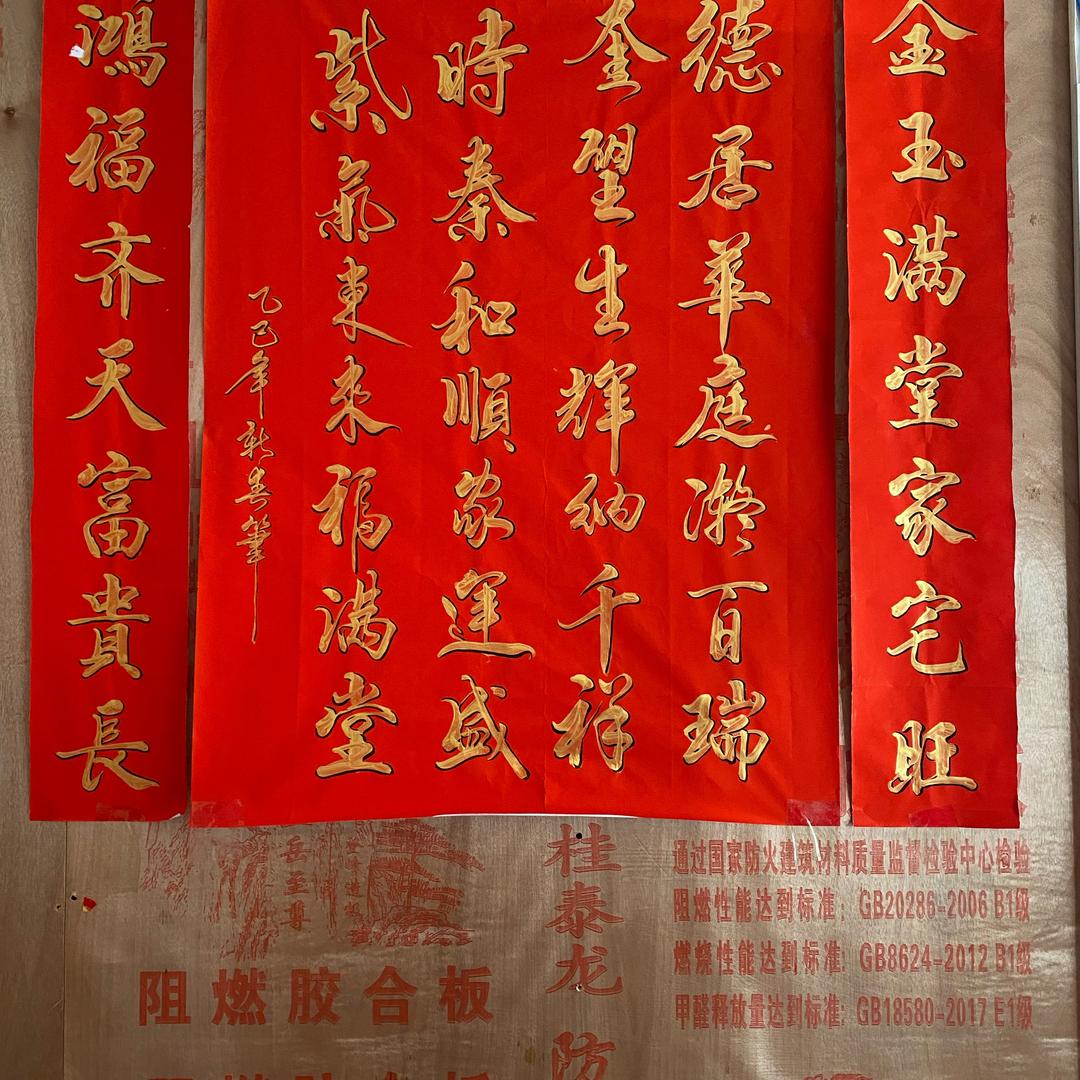 金玉满堂家宅旺
德居華庭凝百瑞
奎望生輝纳千祥
時泰和順家運盛
紫氣東来福满堂
乙巳年新春筆
鴻福齐天富貴長
岳至尊
阻燃胶合板
桂泰龙 防
通过国家防火建筑材料质量监督检验中心检验
阻燃性能达到标准：GB20286-2006 B1级
燃烧性能达到标准：GB8624-2012 B1级
甲醛释放量达到标准：GB18580-2017 E1级